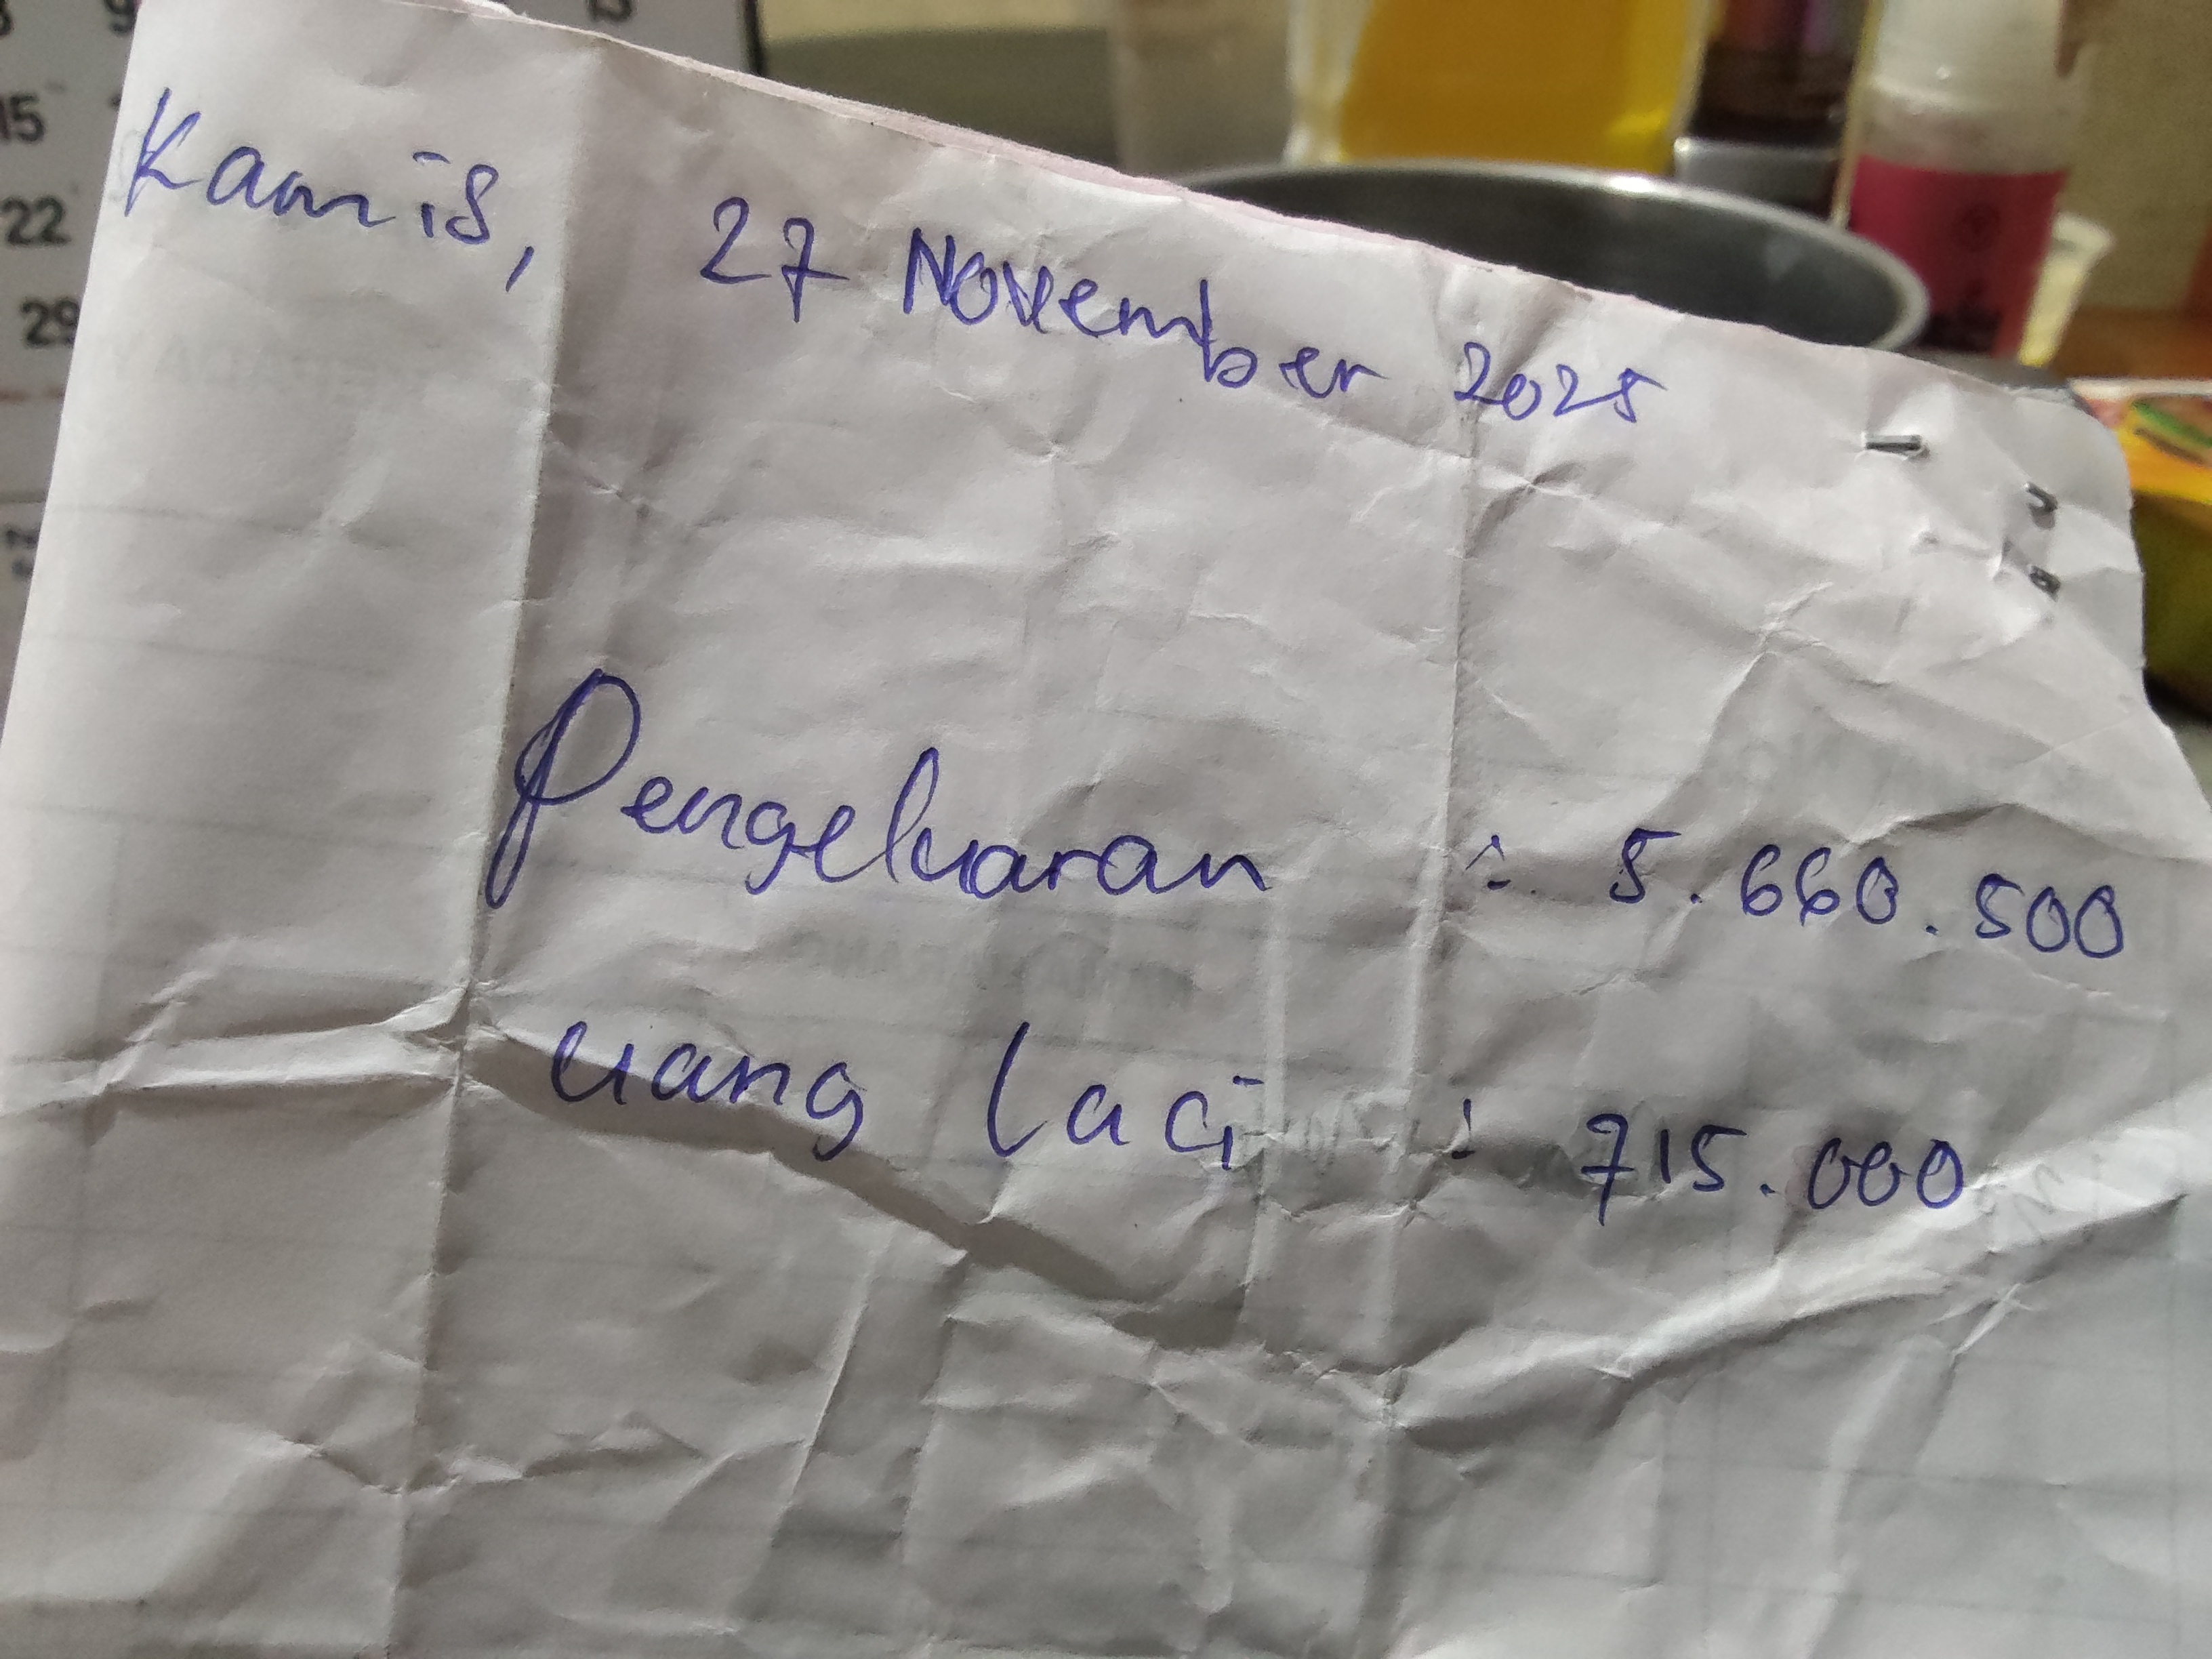 Kamis, 27 November 2025
Pengeluaran : 5.660.500
uang laci : 715.000
15
22
29